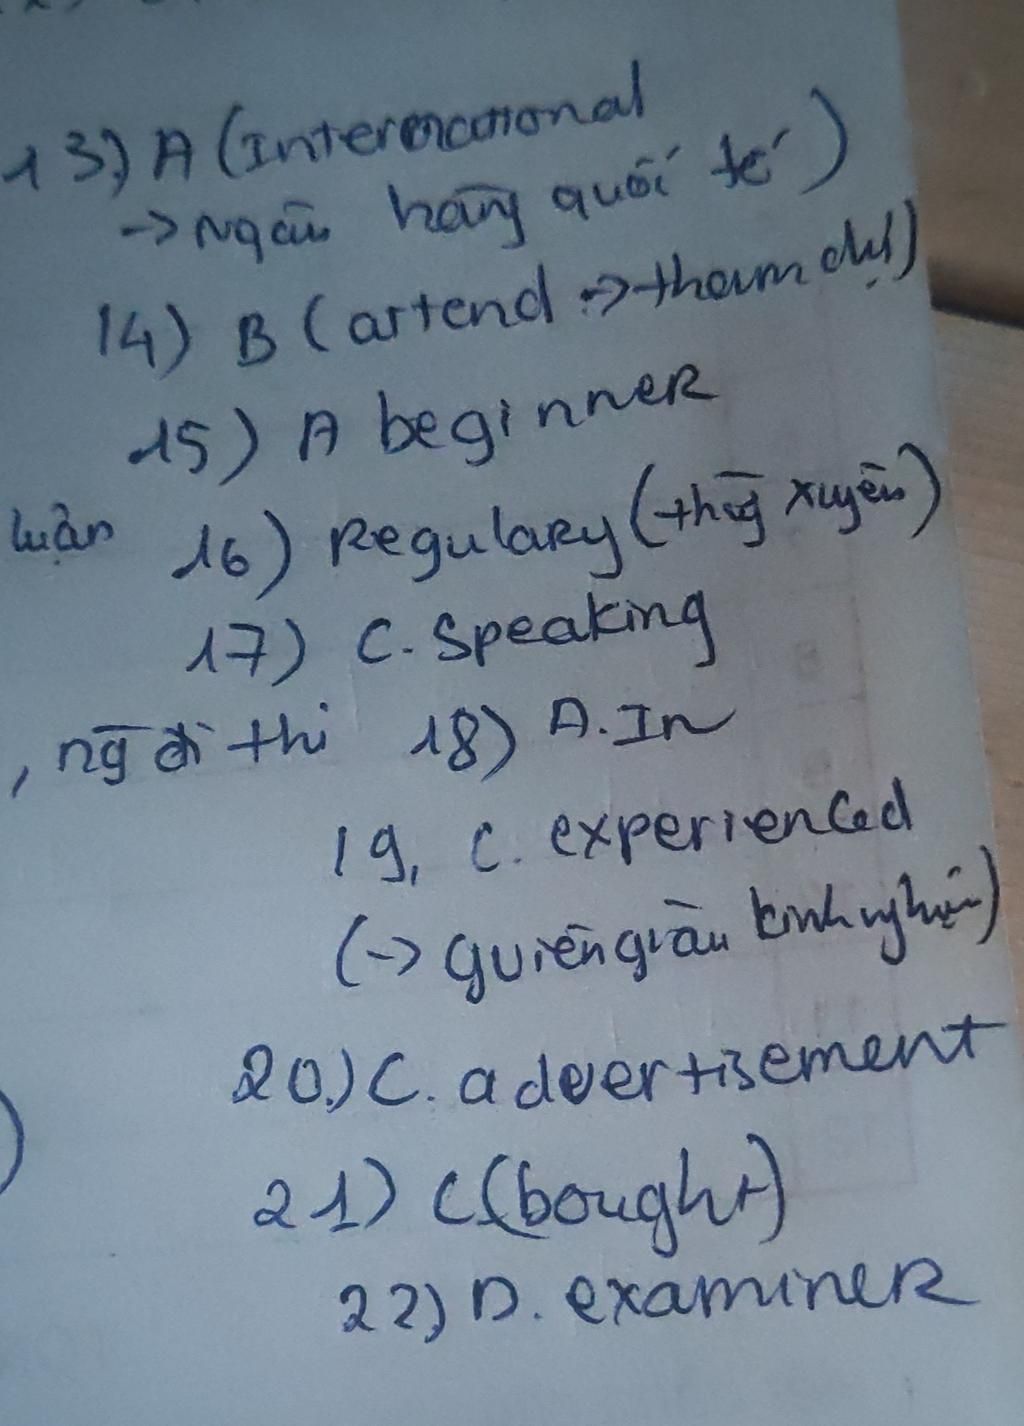 13) A (International
-> Ngân hàng quốc tế)
14) B (attend -> tham dự)
15) A beginner
luận 16) Regulary (thg̀ xuyên)
17) C. Speaking
, ng̀ đi thi 18) A. In
19, C. experienced
(-> giàu kinh nghiệm)
20.) C. advertisement
21) C (bought)
22) D. examiner